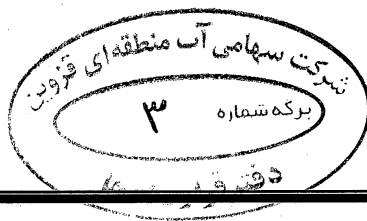 شرکت سهامی آب منطقه‌ای قزوین
برگه شماره ۳
دفتر